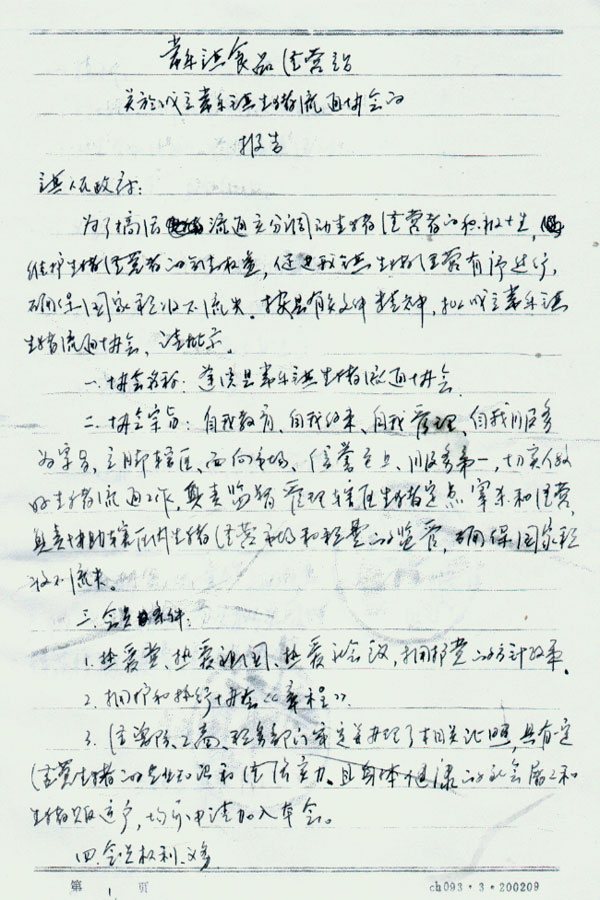 常乐镇食品经营站
关於成立常乐镇生猪流通协会的
报告
镇人民政府：
为了搞活流通充分调动生猪经营者的积极性，
维护生猪经营者的合法权益，促进我镇生猪经营有序进行，
确保国家税收不流失。按县有关文件精神，拟成立常乐镇
生猪流通协会，请批示。
一.协会名称：县常乐镇生猪流通协会.
二.协会宗旨：自我教育、自我约束、自我管理、自我服务
为宗旨，立脚辖区、面向市场、信誉至上、服务第一，切实做
好生猪流通工作，负责监督管理辖区生猪定点宰杀和经营，
负责协助辖区内生猪经营市场和税费的监管，确保国家税
收不流失。
三.会员条件：
1.热爱党、热爱祖国、热爱社会议，拥护党的方针政策.
2.拥护和执行协会《章程》.
3.经消防、工商、税务部门审定并办理了相关证照，具有一定
经营生猪的专业知识和经济实力.且身体健康的社会屠工和
生猪贩运户，均可申请加入本会。
四.会员权利、义务.
第 1 页 ch093·3·200209